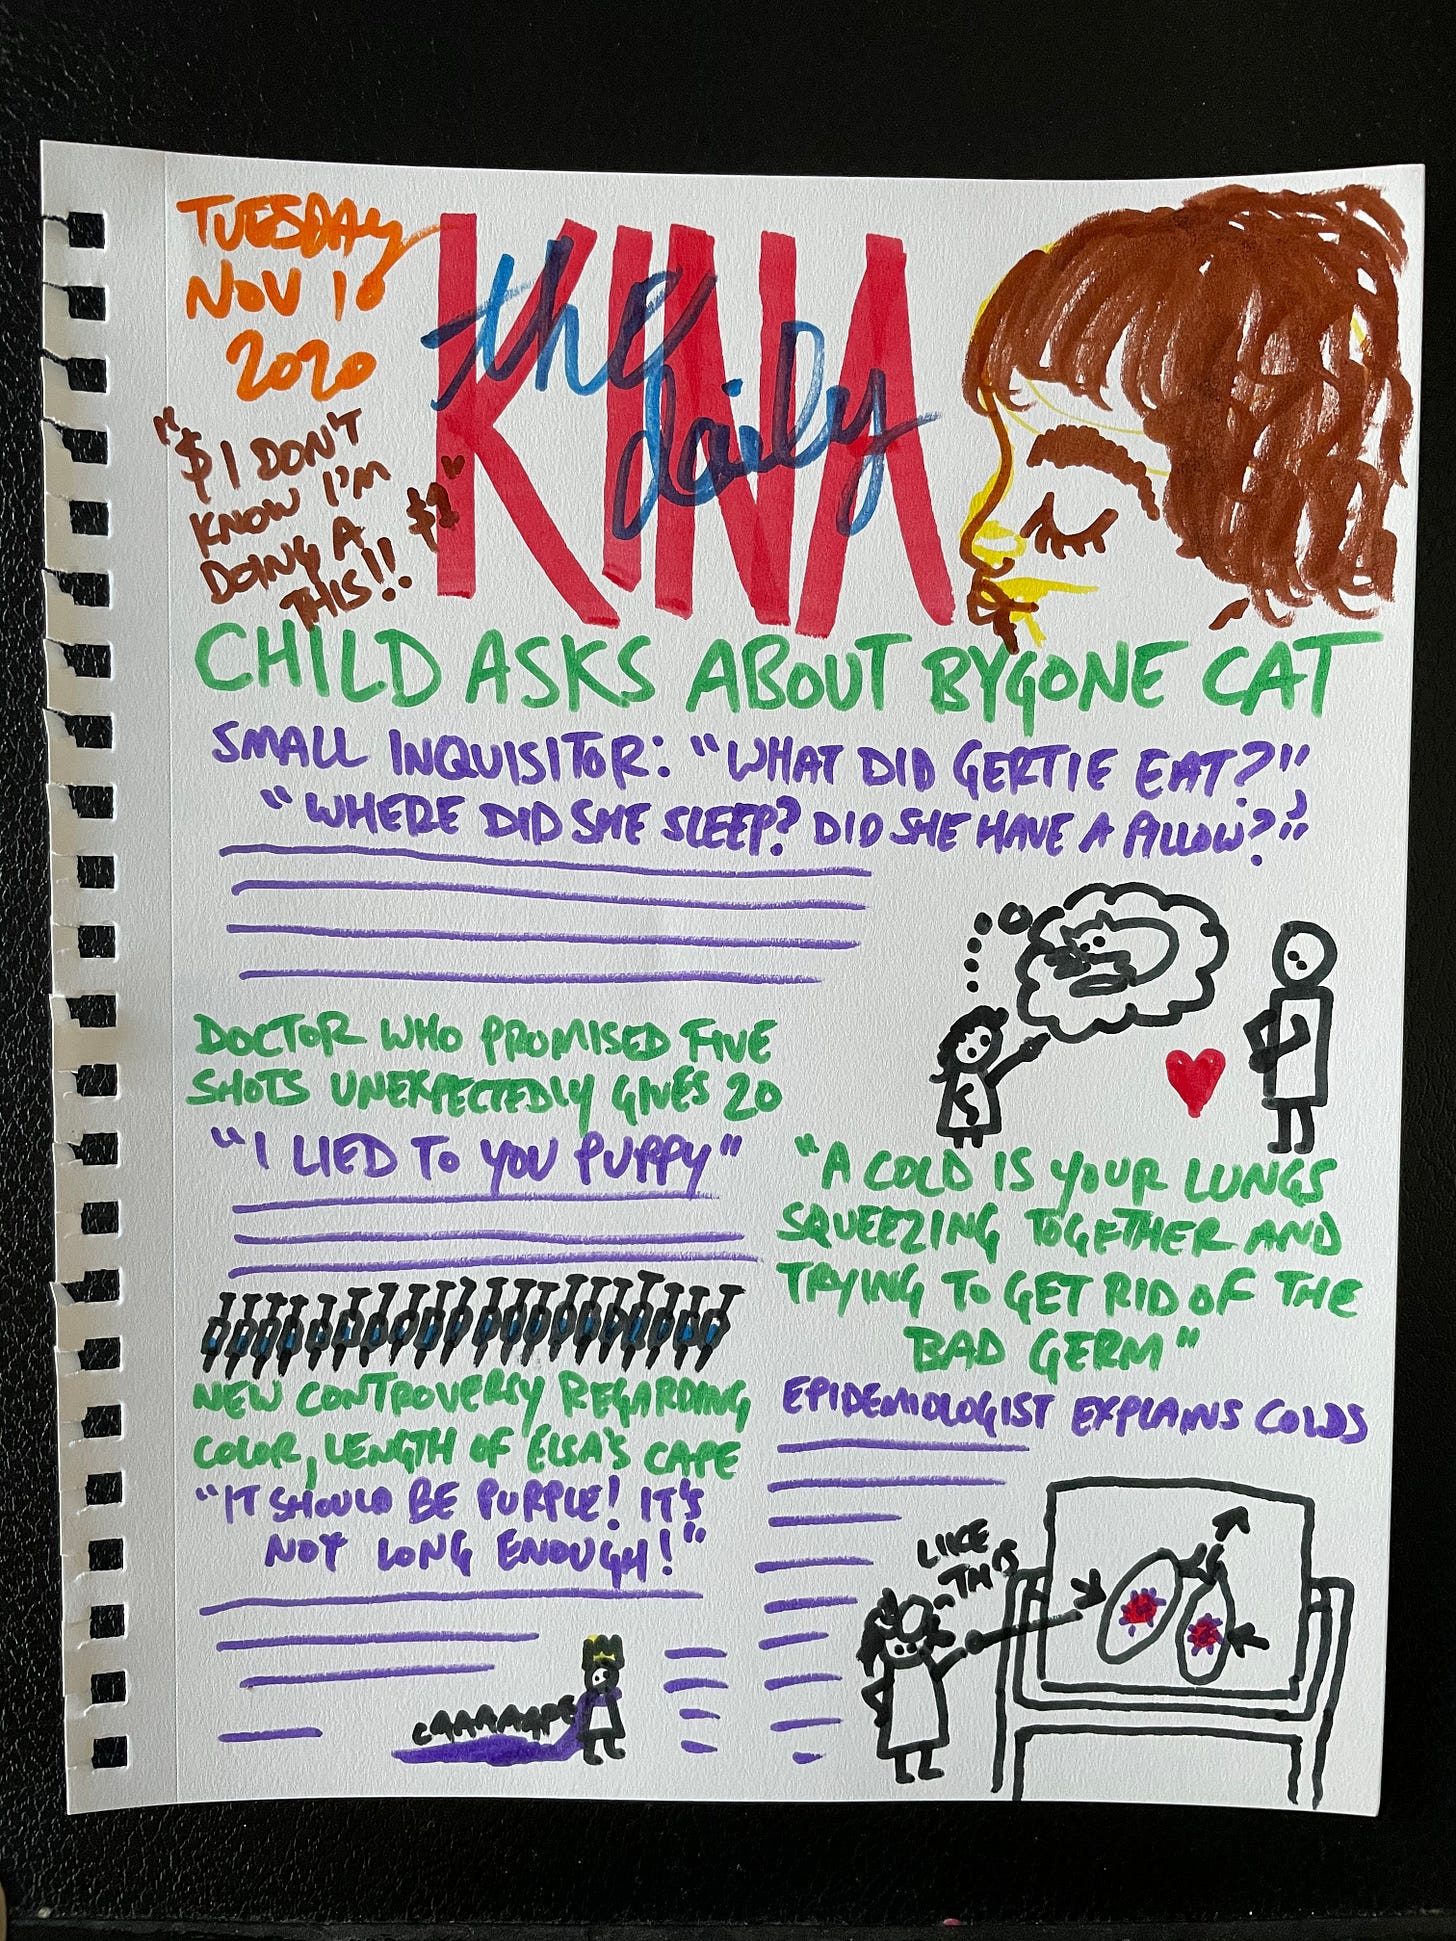 TUESDAY
NOV 10
2020
"$1 DON'T
KNOW I'M
DOING A
THIS!! $1"
the daily
KINA
CHILD ASKS ABOUT BYGONE CAT
SMALL INQUISITOR: "WHAT DID GERTIE EAT?"
"WHERE DID SHE SLEEP? DID SHE HAVE A PILLOW?"
DOCTOR WHO PROMISED FIVE
SHOTS UNEXPECTEDLY GIVES 20
"I LIED TO YOU PUPPY"
NEW CONTROVERSY REGARDING
COLOR, LENGTH OF ELSA'S CAPE
"IT SHOULD BE PURPLE! IT'S
NOT LONG ENOUGH!"
CAAAAAPE
"A COLD IS YOUR LUNGS
SQUEEZING TOGETHER AND
TRYING TO GET RID OF THE
BAD GERM"
EPIDEMIOLOGIST EXPLAINS COLDS
LIKE
THIS